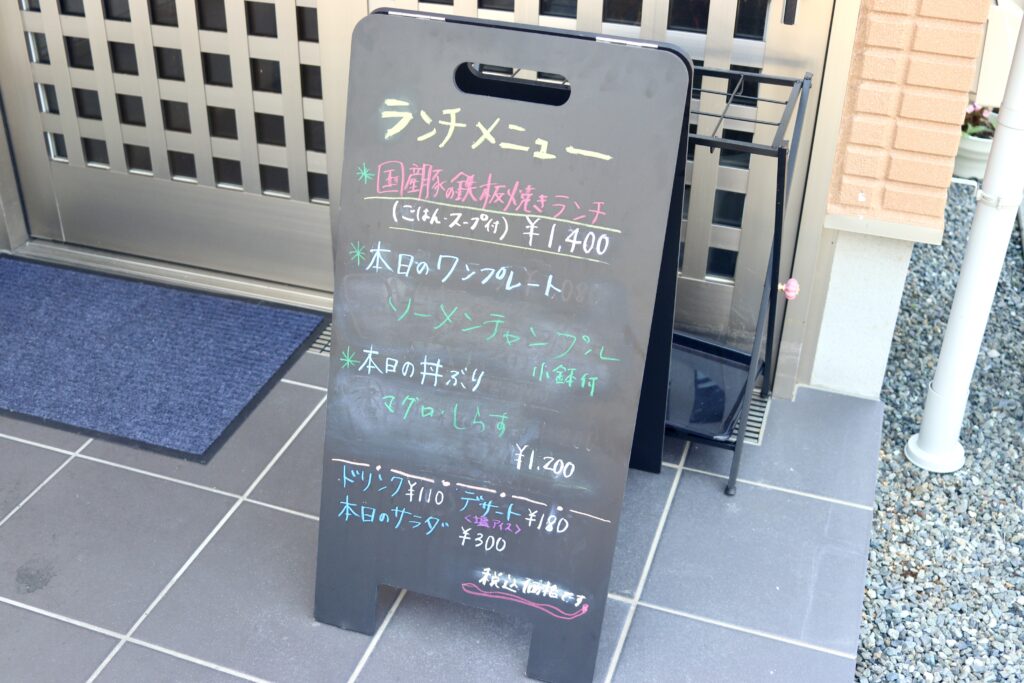 ランチメニュー
*国産豚の鉄板焼きランチ
(ごはん・スープ付) ¥1,400
*本日のワンプレート
ソーメンチャンプル
小鉢付
*本日の丼ぶり
マグロ・しらす
¥1.200
ドリンク¥110 デザート¥180
<塩アイス>
本日のサラダ ¥300
税込価格です